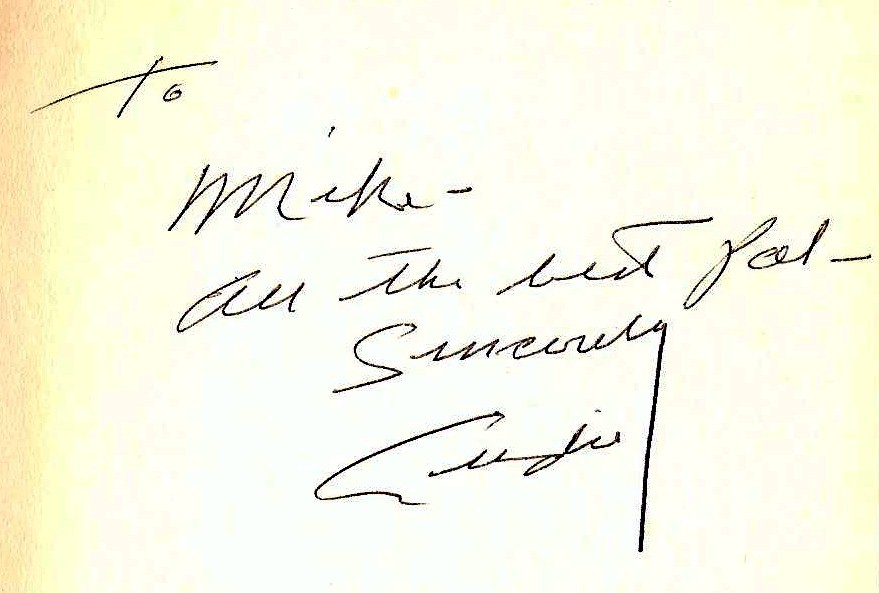 To
Mike -
All the best Pal -
Sincerely
Audie